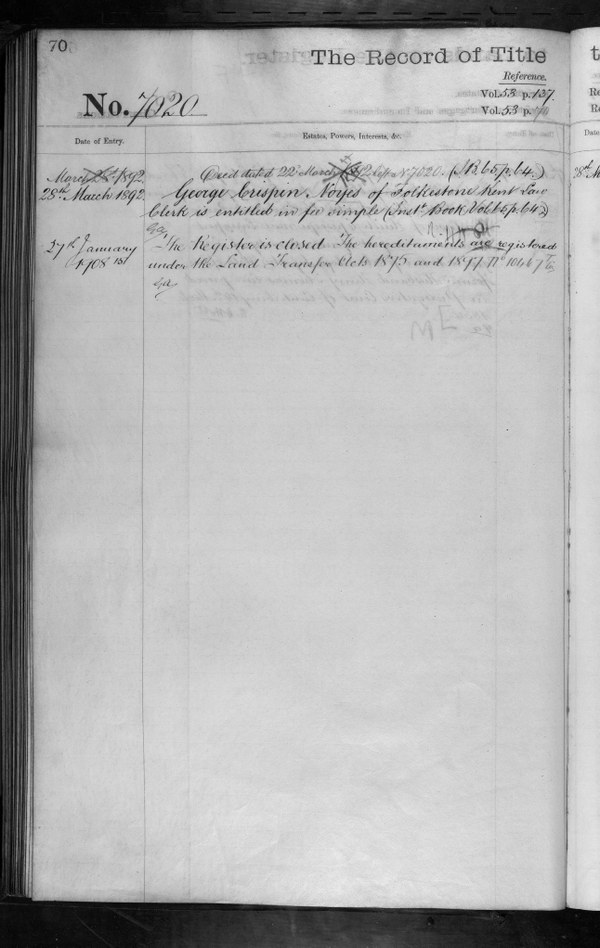 70
The Record of Title
Reference.
Vol. 58 p. 137.
No. 7020
Vol. 53 p.
Date of Entry.
Estates, Powers, Interests, &c.
March 1892
Deed dated 22 March No 7020. (I.B. 65, p. 64.)
28th March 1892
George Crispin Noyes of Folkestone Kent Law
Clerk is entitled in fee simple (Inst. Book Vol. 65, p. 64.)
27th January
The Register is closed The hereditaments are registered
1908
under the Land Transfer Acts 1875 and 1897 No
t
Re
Re
Dat
28th M